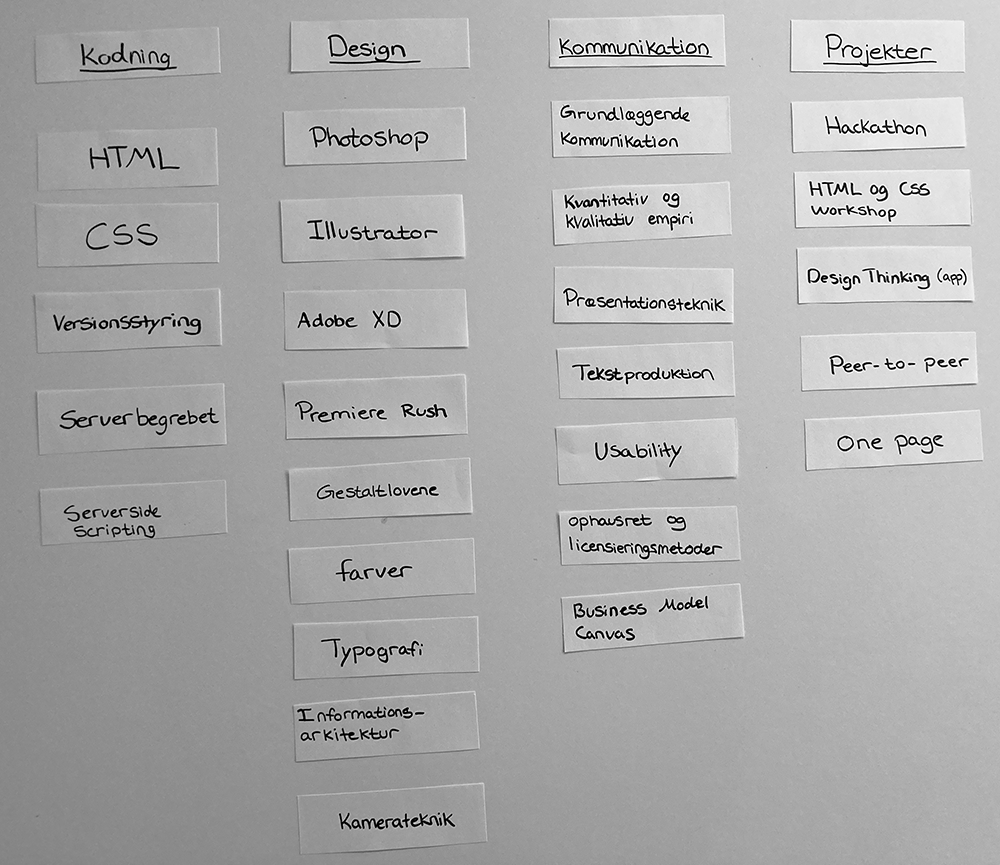 Kodning
HTML
CSS
Versionsstyring
Serverbegrebet
Serverside
Scripting
Design
Photoshop
Illustrator
Adobe XD
Premiere Rush
Gestaltlovene
farver
Typografi
Informations-
arkitektur
Kamerateknik
Kommunikation
Grundlæggende
Kommunikation
Kvantitativ og
kvalitativ empiri
Præsentationsteknik
Tekstproduktion
Usability
ophausret og
licensieringsmetoder
Business Model
Canvas
Projekter
Hackathon
HTML og CSS
workshop
Design Thinking (app)
Peer-to-peer
One page